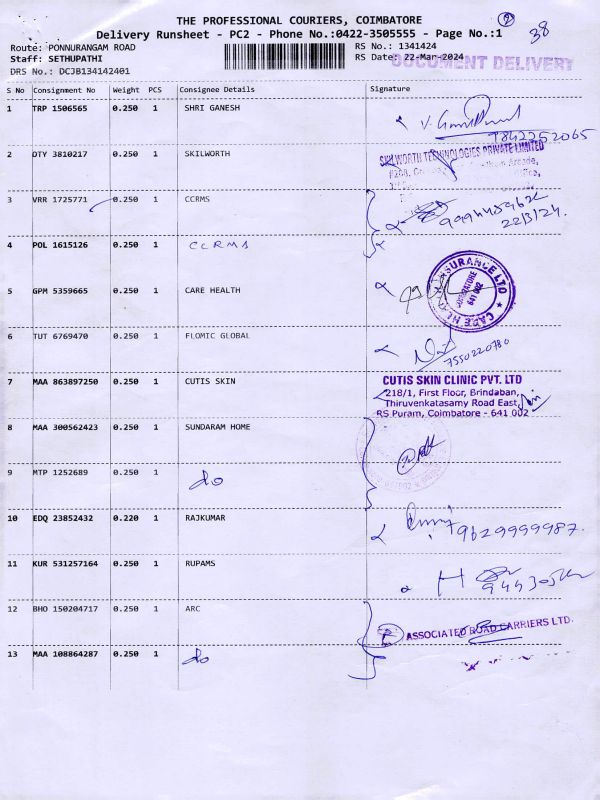 THE PROFESSIONAL COURIERS, COIMBATORE
Delivery Runsheet - PC2 - Phone No.:0422-3505555 - Page No.:1
2
38
Route: PONNURANGAM ROAD
RS No.: 1341424
Staff: SETHUPATHI
RS Date: 22-Mar-2024
DOCUMENT DELIVERY
DRS No.: DCJB134142401
S No Consignment No Weight PCS Consignee Details Signature
1 TRP 1506565 0.250 1 SHRI GANESH
7842252065
2 DTY 3810217 0.250 1 SKILWORTH
SKILWORTH TECHNOLOGIES PRIVATE LIMITED
3 VRR 1725771 0.250 1 CCRMS
22/3/24.
4 POL 1615126 0.250 1 CCRMS
5 GPM 5359665 0.250 1 CARE HEALTH
CARE INSURANCE LTD
COIMBATORE
641 002
6 TUT 6769470 0.250 1 FLOMIC GLOBAL
7550220780
7 MAA 863897250 0.250 1 CUTIS SKIN
CUTIS SKIN CLINIC PVT. LTD
218/1, First Floor, Brindaban,
Thiruvenkatasamy Road East,
RS Puram, Coimbatore - 641 002
8 MAA 300562423 0.250 1 SUNDARAM HOME
9 MTP 1252689 0.250 1 do
10 EDQ 23852432 0.220 1 RAJKUMAR
9629999987.
11 KUR 531257164 0.250 1 RUPAMS
12 BHO 150204717 0.250 1 ARC
ASSOCIATED ROAD CARRIERS LTD.
13 MAA 108864287 0.250 1 do